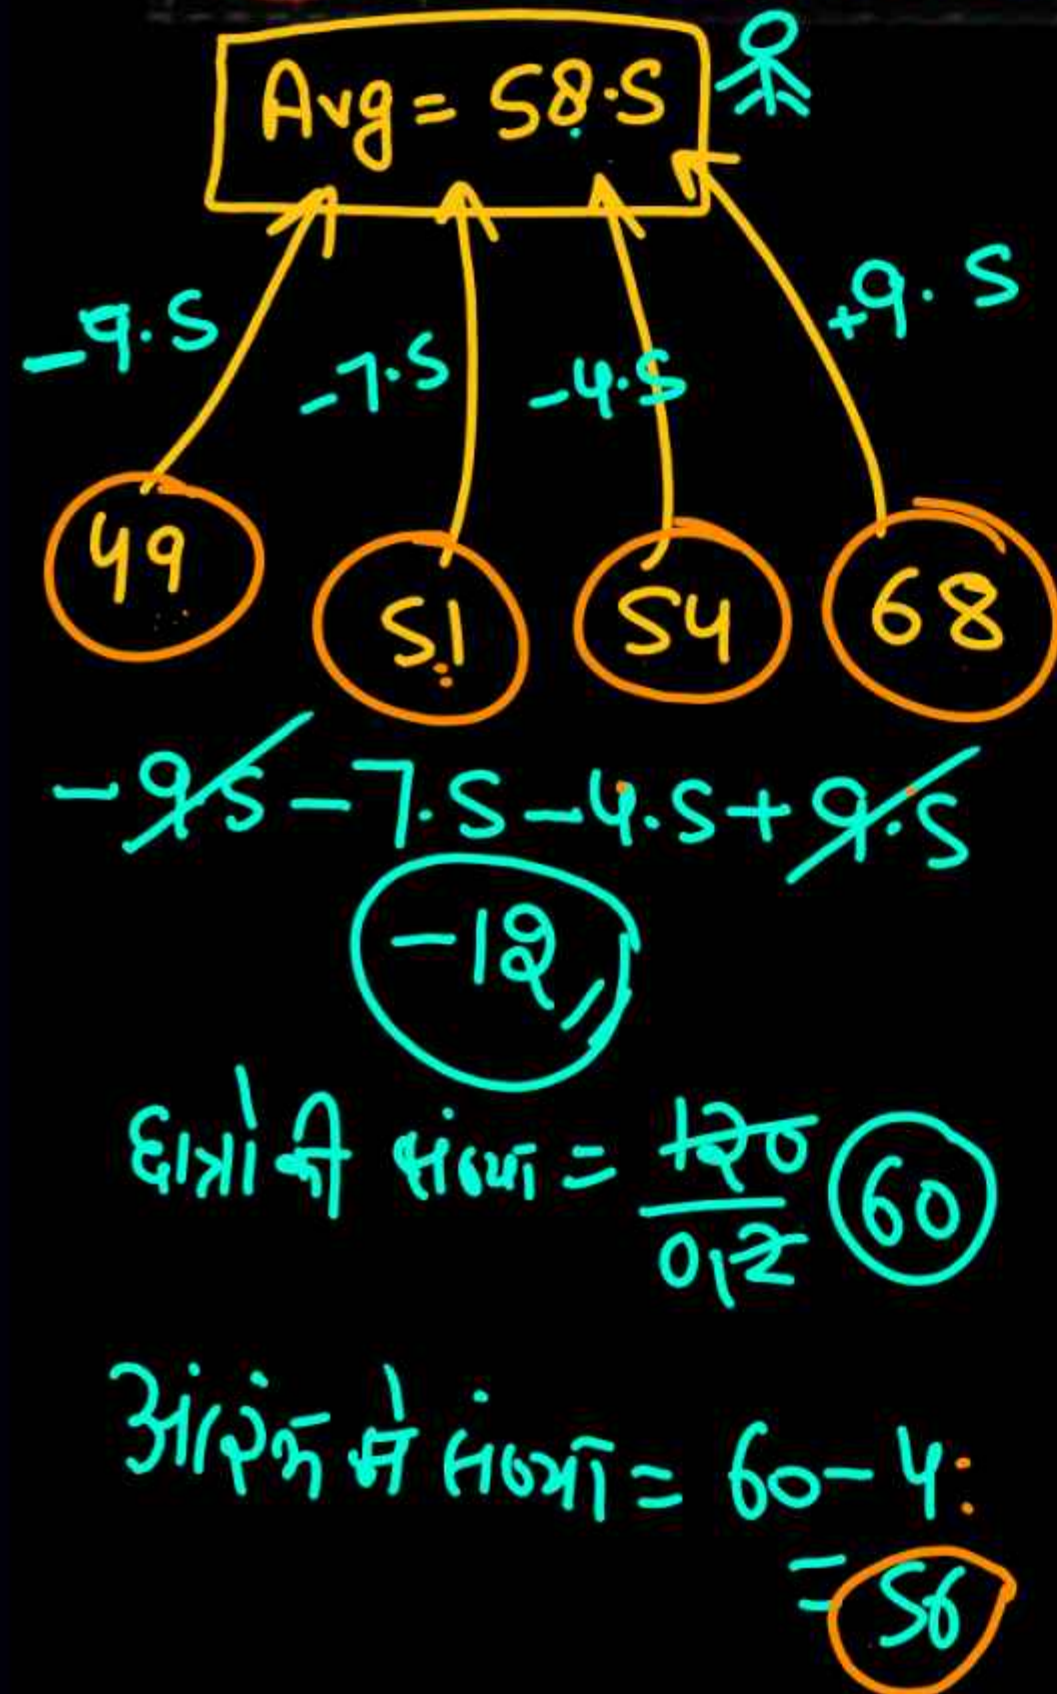 Avg = 58.5
-9.5 -7.5 -4.5 +9.5
49 51 54 68
-9.5-7.5-4.5+9.5
-12
छात्रों की संख्या = 120/0.2 60
आरंभ में संख्या = 60-4
= 56